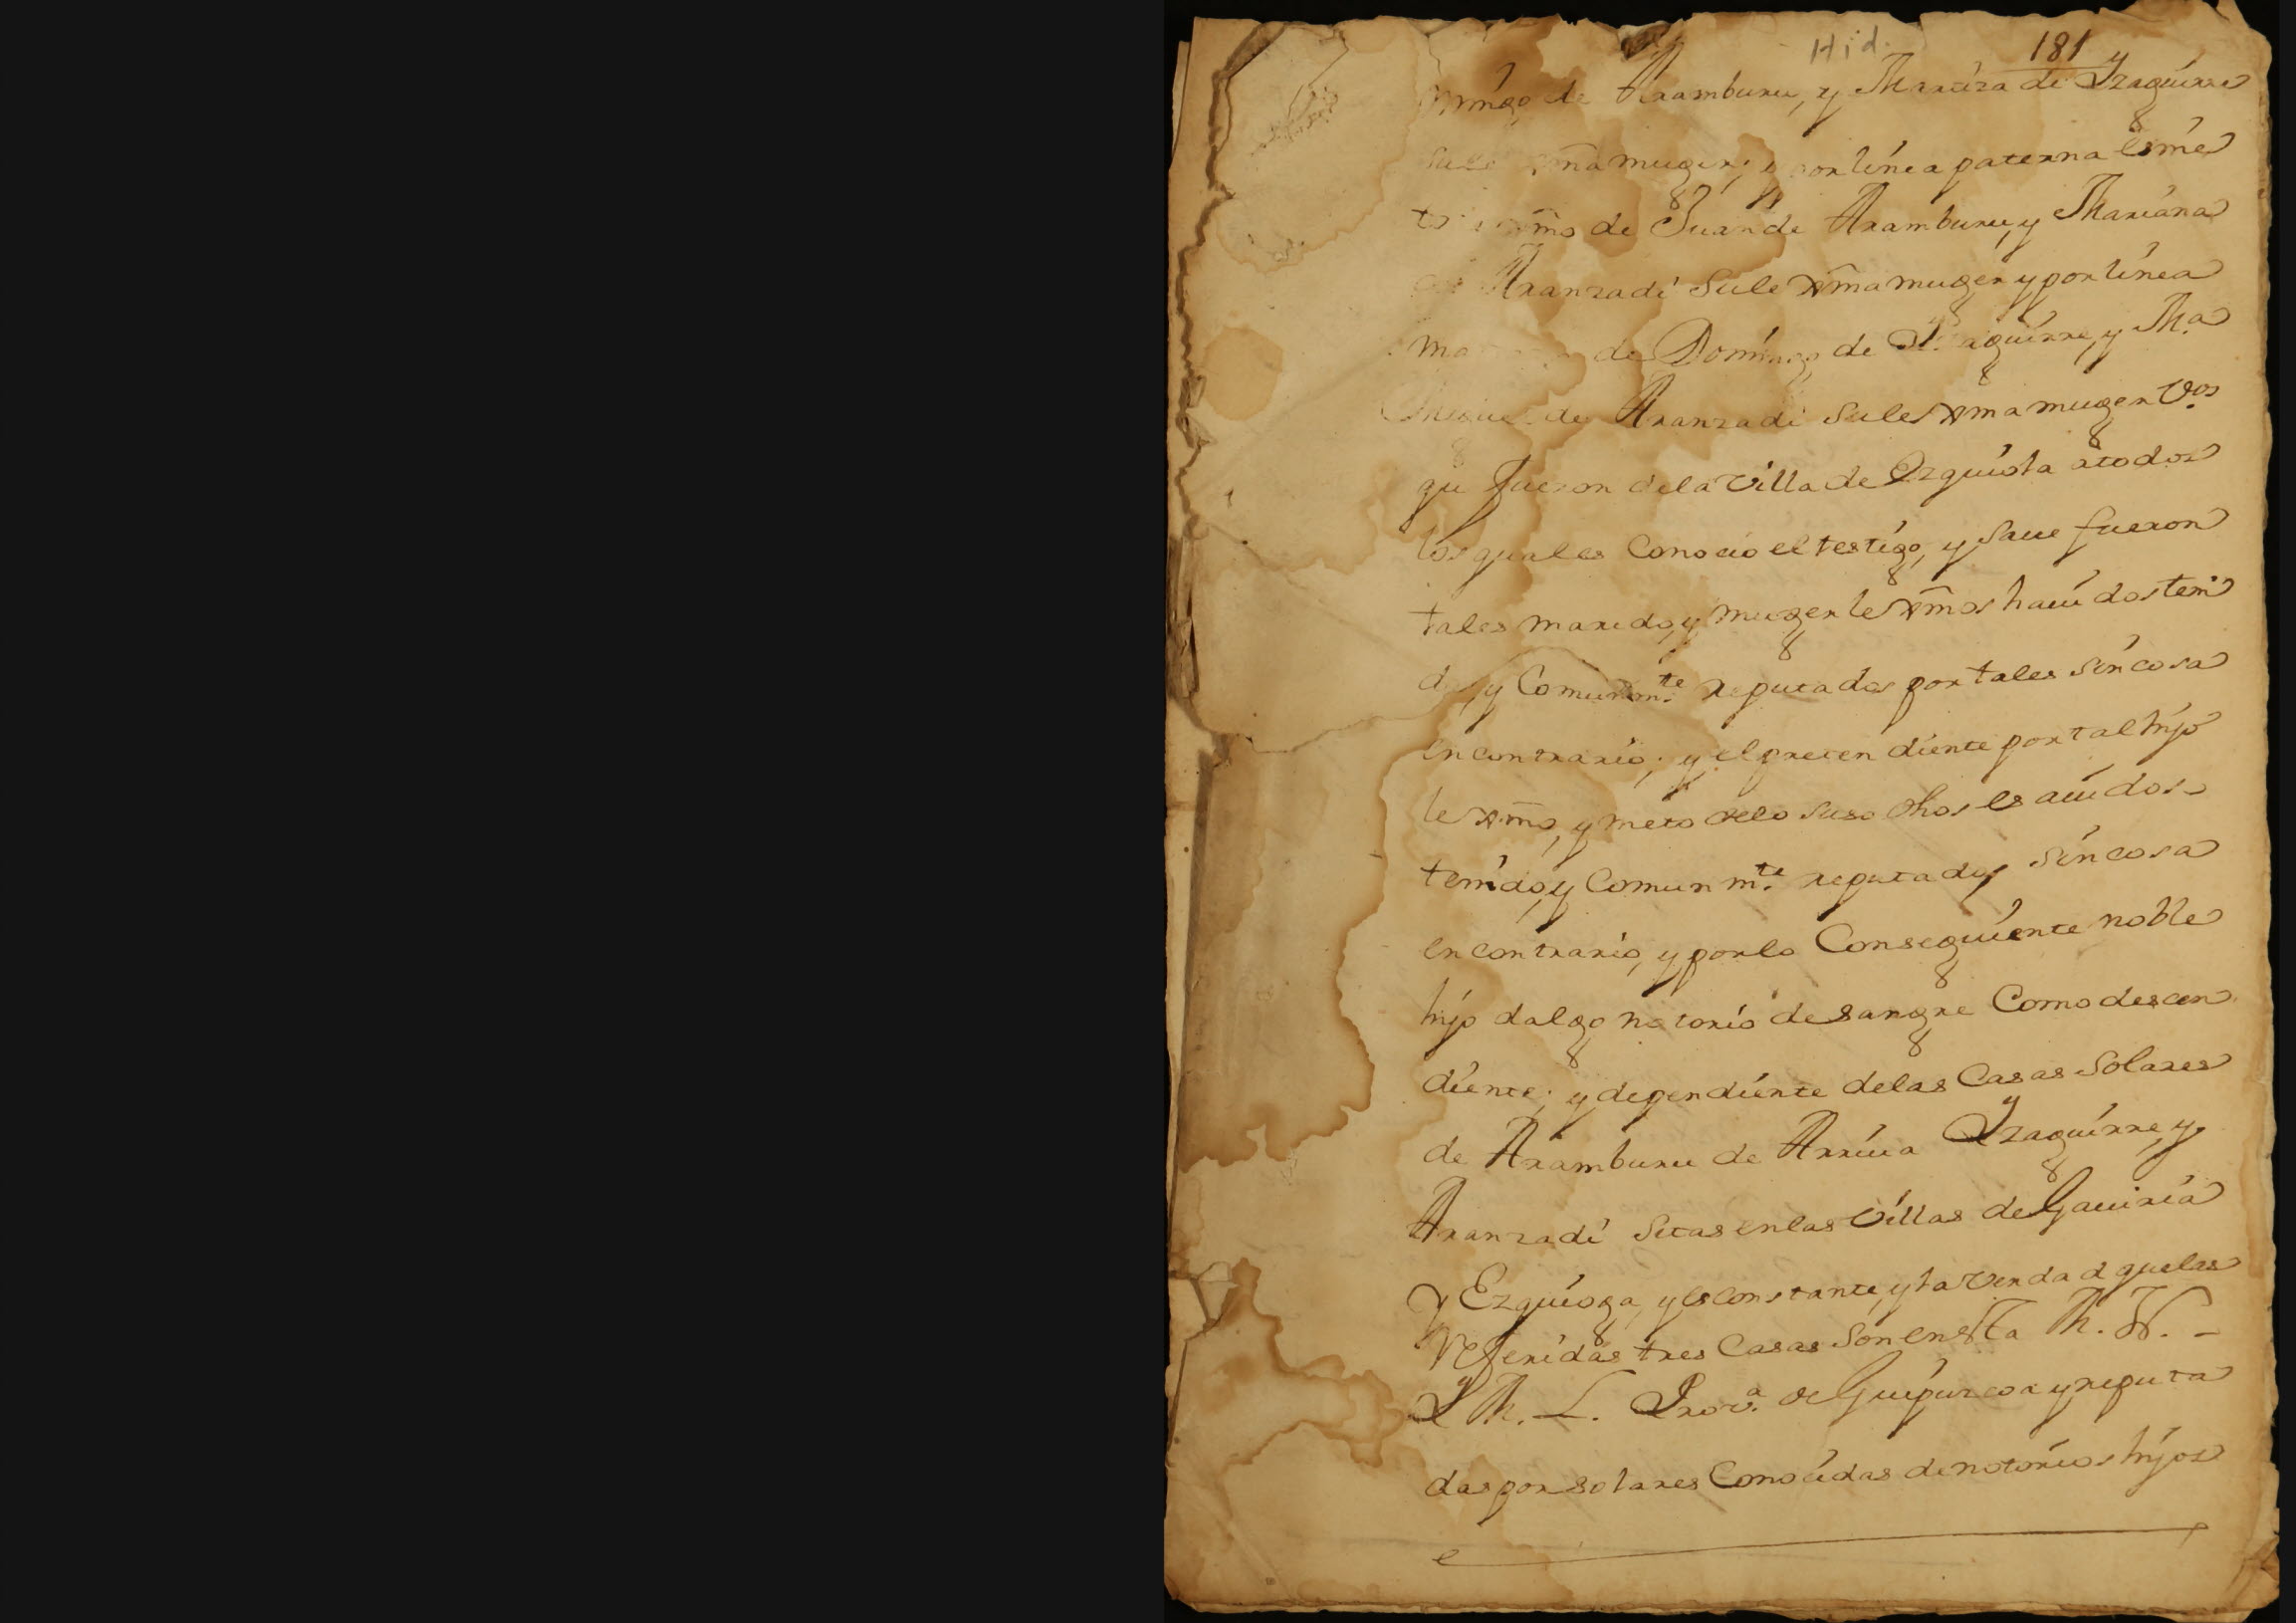 Hid.
181
mingo de Aramburu, y Maria de Yzaguirre
su lexma muger; y por linea paterna es nie
to lexmo de Juan de Aramburu, y Mariana
de Aranzadi su lexma muger y por linea
ma de Domingo de Yzaguirre, y Ma
Miguel de Aranzadi su lexma muger Vos
que fueron de la Villa de Ezquiota a todos
los quales Conocio el testigo, y saue fueron
tales marido, y muger lexmos hauidos teni
dos, y Comunmte reputados por tales sin cosa
en contrario; y el pretendiente por tal hijo
lexmo, y nieto de lo suso dhos es auidos
tenido, y Comunmte reputados sin cosa
en contrario, y por lo Conseguiente noble
hijo dalgo notorio de sangre Como descen
diente; y dependiente de las Casas Solares
de Aramburu de Arriua Yzaguirre, y
Aranzadi sitas en las Villas de Gauiria
y Ezquioga, y es constante, y la verdad q las
Referidas tres Casas son en esta M. N. -
Y M. L. Prova de Guipuzcoa y reputa
das por solares Conocidas de notorios hijos